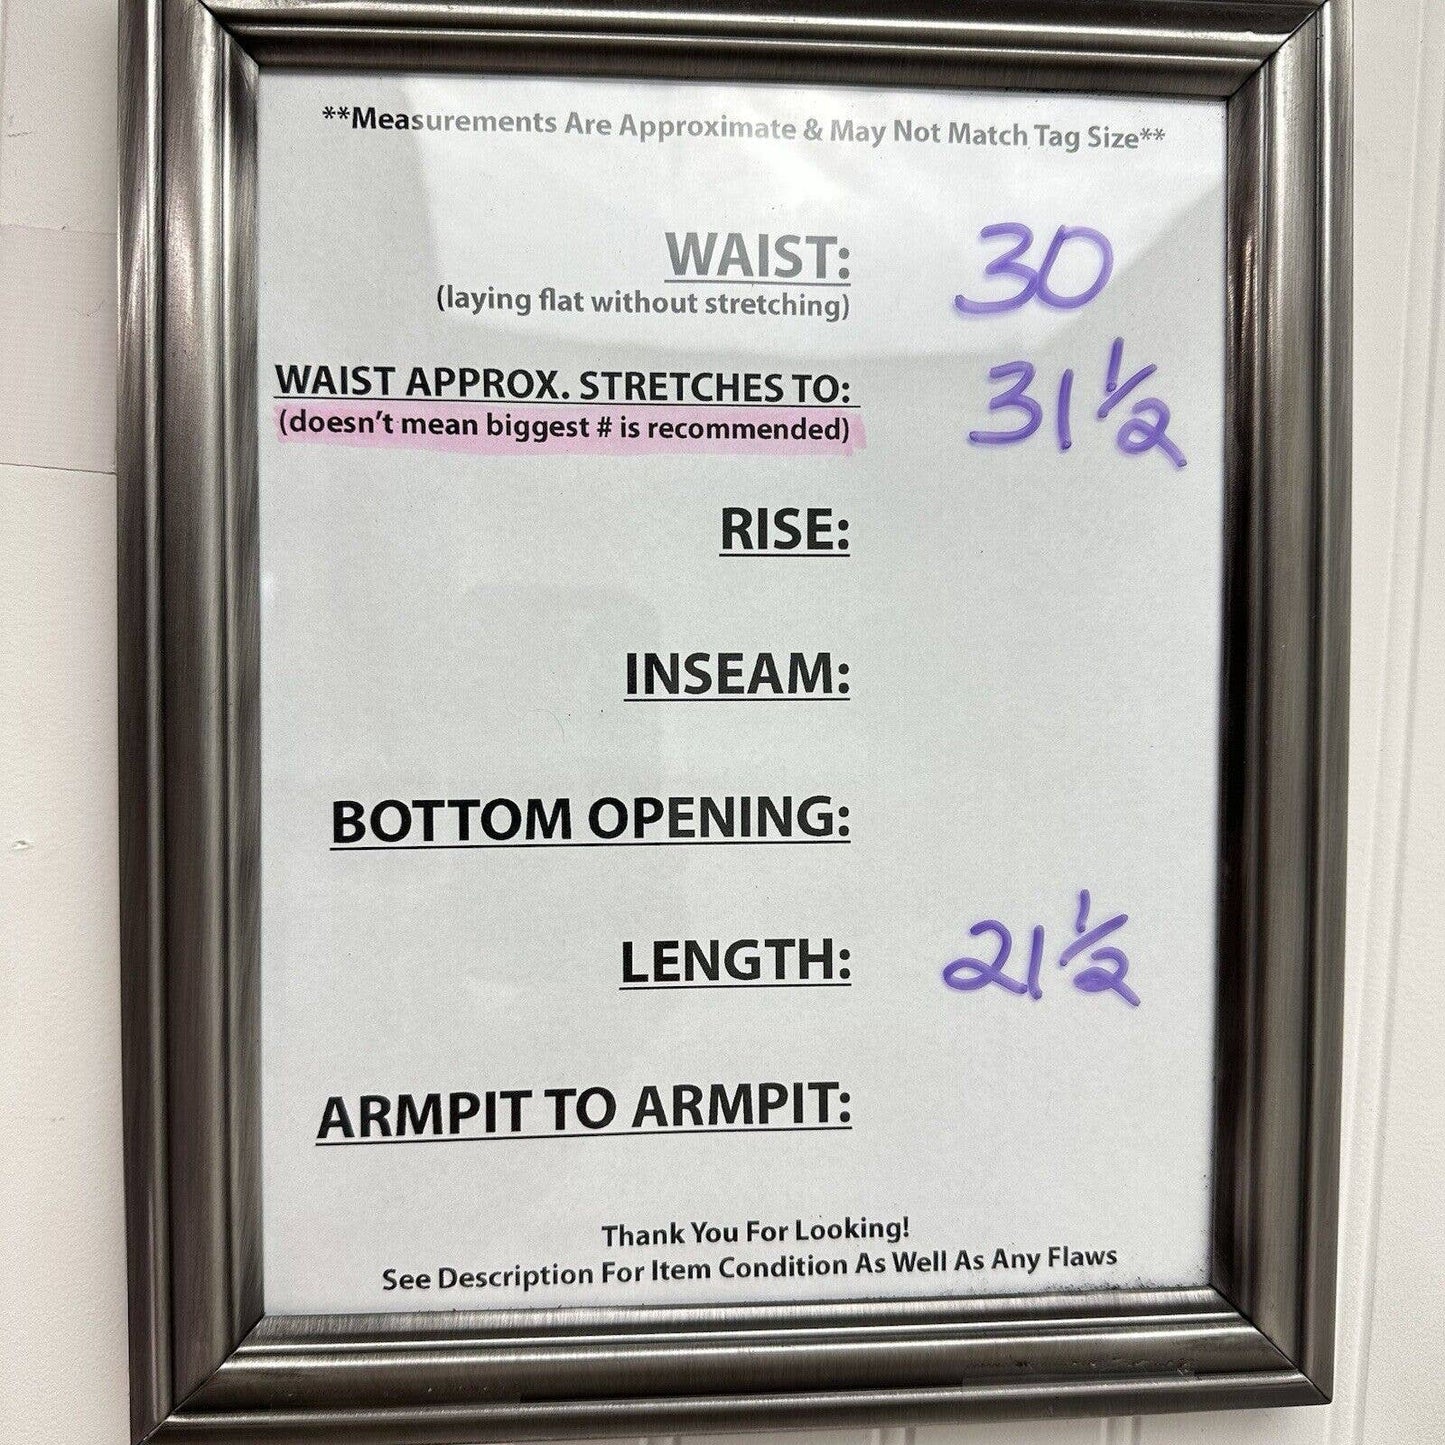 **Measurements Are Approximate & May Not Match Tag Size**
WAIST: 30
(laying flat without stretching)
WAIST APPROX. STRETCHES TO: 31 1/2
(doesn't mean biggest # is recommended)
RISE:
INSEAM:
BOTTOM OPENING:
LENGTH: 21 1/2
ARMPIT TO ARMPIT:
Thank You For Looking!
See Description For Item Condition As Well As Any Flaws